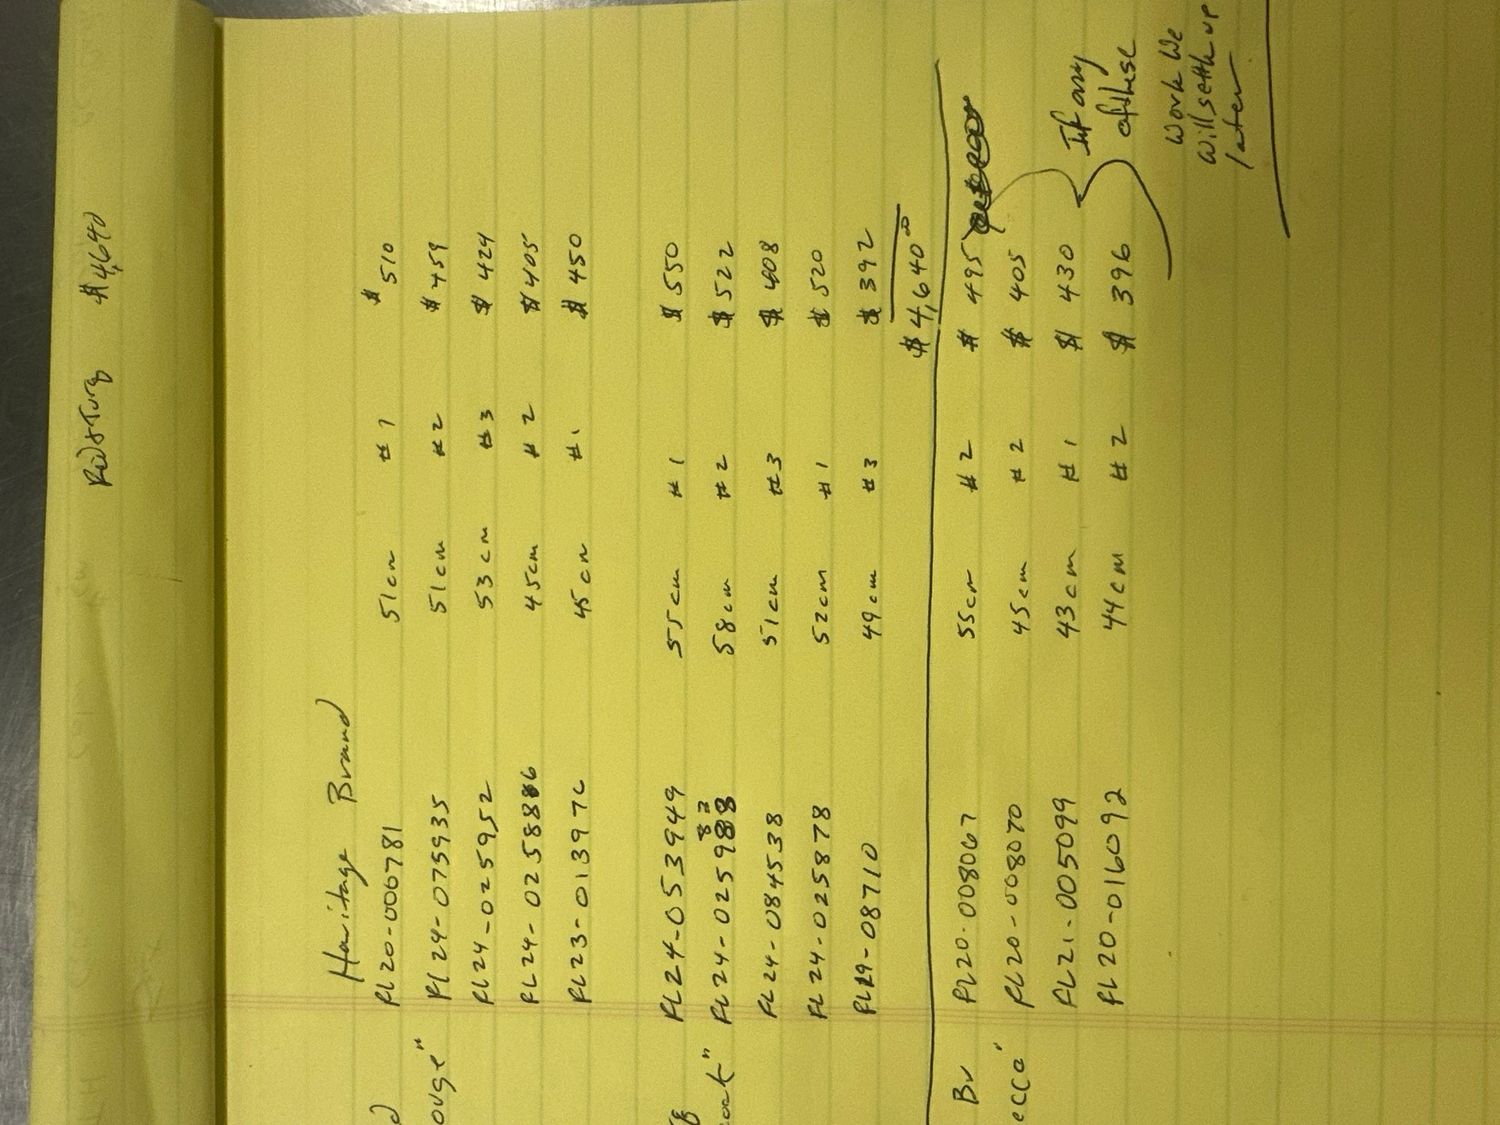 Red & Turq $4,640
Haritage Brand
FL20-006781 51cm #1 $510
ouge" FL24-075935 51cm #2 $459
FL24-025952 53cm #3 $424
FL24-025886 45cm #2 $405
FL23-013976 45cm #1 $450
FL24-053949 55cm #1 $550
FL24-025983 58cm #2 $522
FL24-084538 51cm #3 $408
FL24-025878 52cm #1 $520
FL19-08710 49cm #3 $392
$4,640.00
Br FL20-008067 55cm #2 $495
ecca' FL20-008070 45cm #2 $405
FL21-005099 43cm #1 $430
FL20-016092 44cm #2 $396
If any
of these
work we
will settle up
later